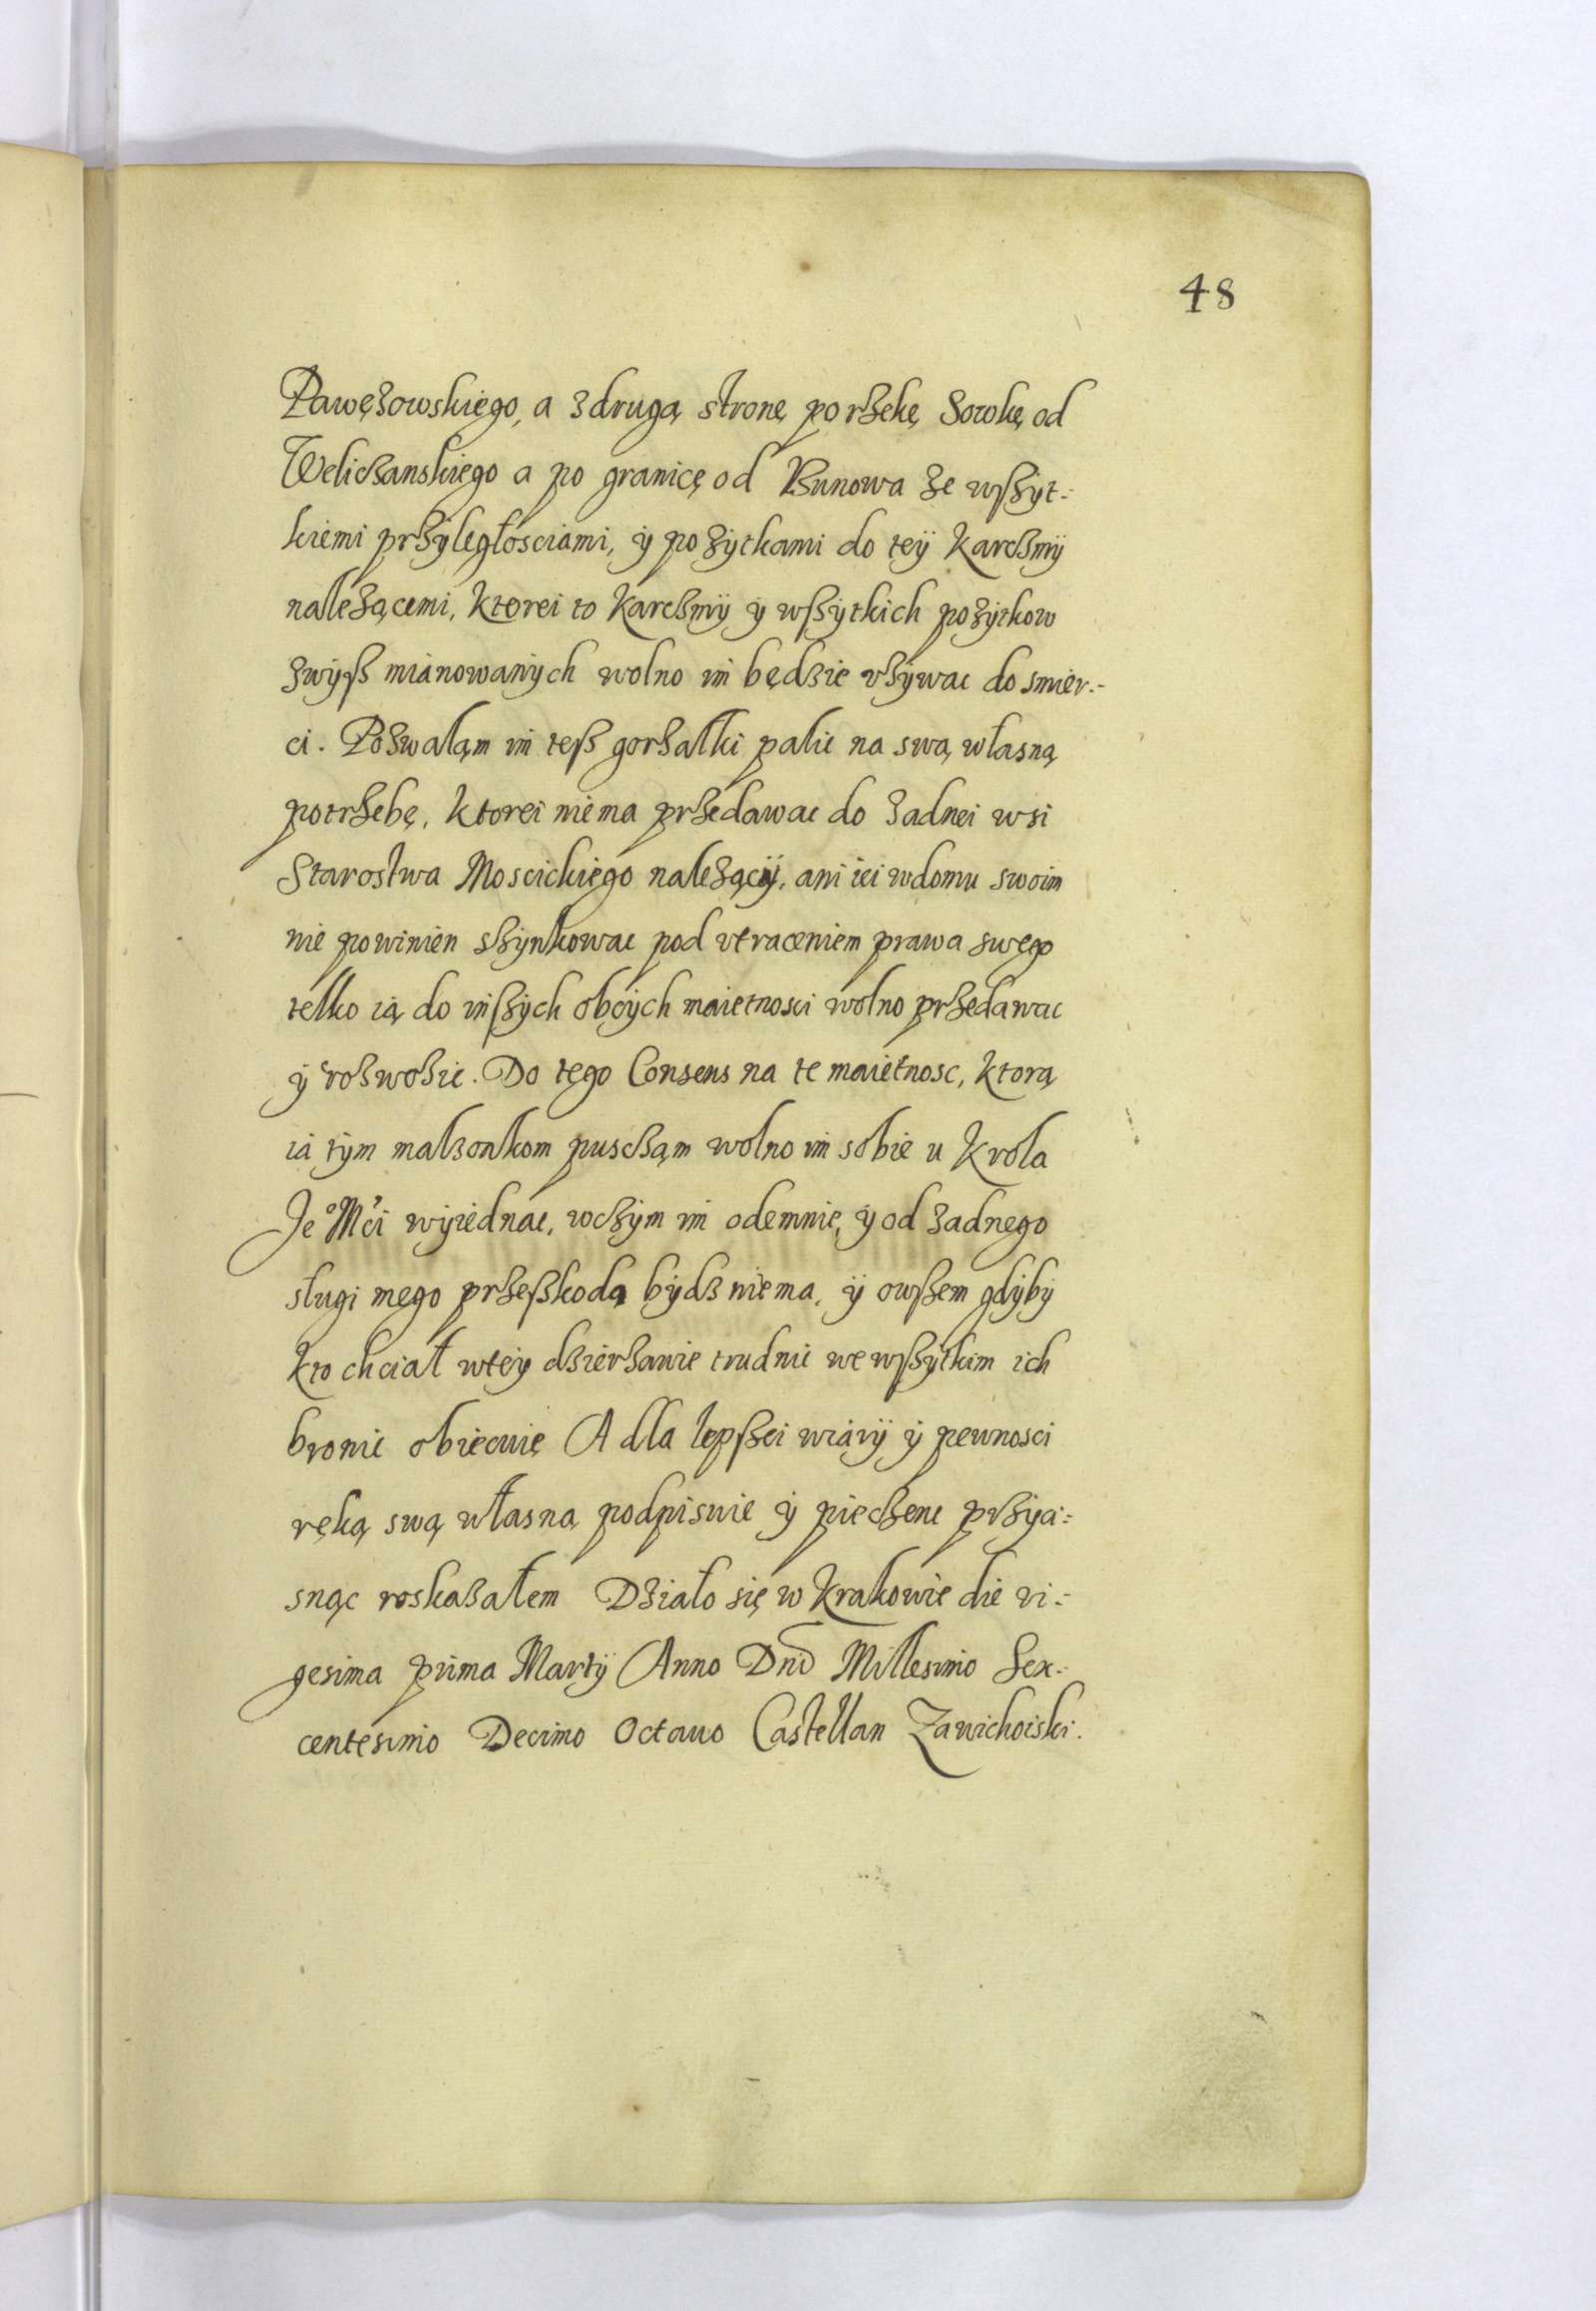 48
Pawęzowskiego, a zdrugą stronę po rzekę Sowkę od
Weliczanskiego a po granicę od Bunowa ze wszyt-
kiemi przyległosciami, ÿ pozytkami do teÿ karczmÿ
nalezącemi, ktorei to karczmÿ ÿ wszytkich pozÿtkow
zwÿsz mianowanÿch wolno im będzie vzÿwac do smier-
ci. Pozwaląm im tesz gorzałki palic na swą własną
potrzebę, ktorei niema przedawac do zadnei wsi
Starostwa Moscickiego nalezącÿ, ani iei wdomu swoim
nie powinien szÿnkowac pod vtraceniem prawa swego
telko ią do inszÿch obcÿch maietnosci wolno przedawac
ÿ rozwozic. Do tego Consens na te maietnosc, ktorą
ia tÿm malzonkom puscząm wolno im sobie u Krola
Je° Mći wÿiednac, wczÿm im odemnie, ÿ od zadnego
sługi mego przeszkodą bÿdz niema, ÿ owszem gdÿbÿ
kto chciał wteÿ dzierzawie trudnic we wszÿtkim ich
bronic obiecuię A dla lepszei wiarÿ ÿ pewnosci
ręką swą własną podpisuie ÿ pieczenc przÿci=
snąc roskazałem Działo się w Krakowie die vi-
gesima prima Martÿ Anno Dni Millesimo Sex-
centesimo Decimo Octauo Castellan Zawichoiski.